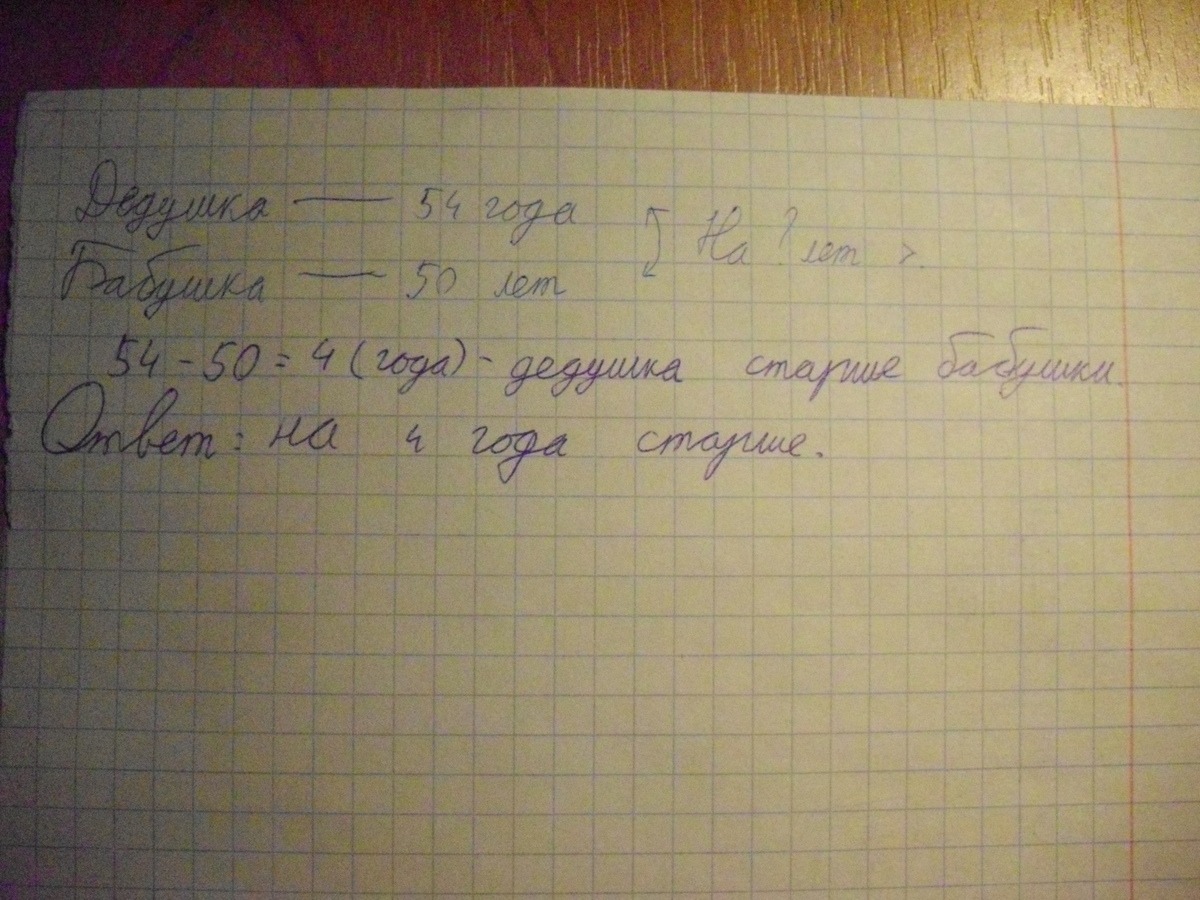 Дедушка — 54 года
На ? лет >.
Бабушка — 50 лет
54 - 50 = 4 (года) - дедушка старше бабушки.
Ответ: на 4 года старше.